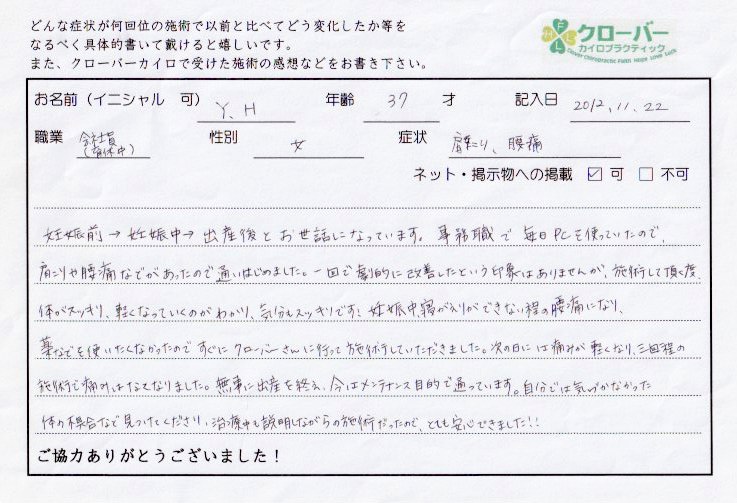 どんな症状が何回位の施術で以前と比べてどう変化したか等を
なるべく具体的書いて戴けると嬉しいです。
また、クローバーカイロで受けた施術の感想などをお書き下さい。
クローバー
カイロプラクティック
Clover chiropractic FAITH HOPE LOVE LUCK
お名前（イニシャル 可） Y、H 年齢 37 才 記入日 2012,11,22
職業 会社員（育休中） 性別 女 症状 肩こり、腰痛
ネット・掲示物への掲載 ☑ 可 □ 不可
妊娠前→妊娠中→出産後とお世話になっています。事務職で毎日PCを使っていたので、
肩こりや腰痛などがあったので通いはじめました。一回で劇的に改善したという印象はありませんが、施術して頂く度、
体がスッキリ、軽くなっていくのがわかり、気分もスッキリです！妊娠中寝がえりができない程の腰痛になり、
薬などを使いたくなかったのですぐにクローバーさんに行って施術していただきました。次の日には痛みが軽くなり、三回程の
施術で痛みはなくなりました。無事に出産を終え、今はメンテナンス目的で通っています。自分では気づかなかった
体の不具合など見つけてくださり、治療中も説明しながらの施術だったので、とても安心できました!!
ご協力ありがとうございました！